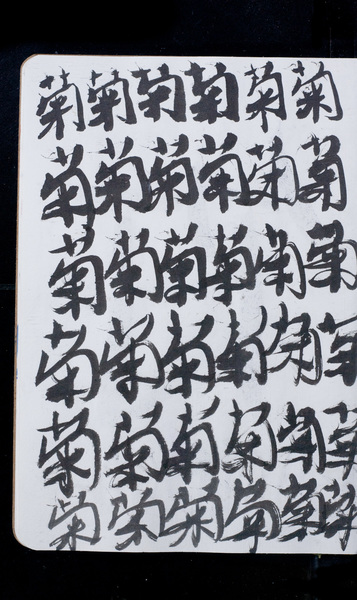 菊菊菊菊菊菊
菊菊菊菊菊菊
菊菊菊菊菊菊
菊菊菊菊菊菊
菊菊菊菊菊菊
菊菊菊菊菊菊